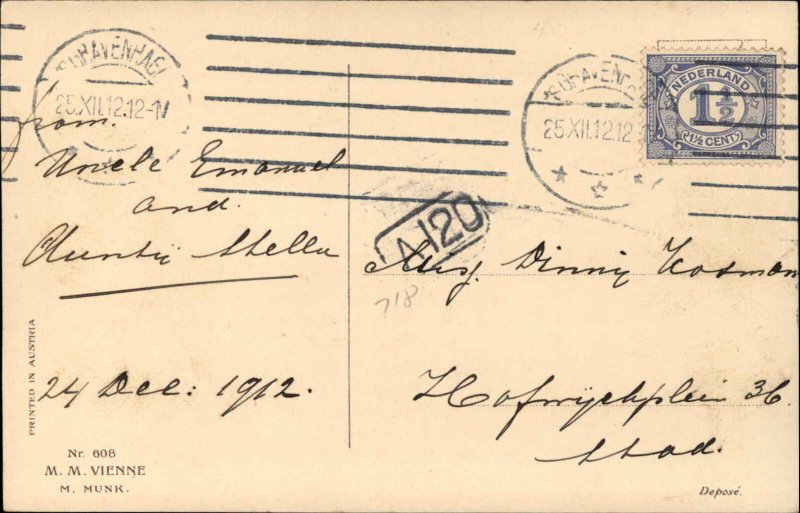 'S GRAVENHAGE
25.XII.12.12-1N
'S GRAVENHAGE
25.XII.12.12
NEDERLAND
1½
1½ CENT
from
Uncle Emanuel
and
Auntie Stella
24 Dec: 1912.
A120
718
Dinny Kosman
Hofwijckplein 36.
Stad.
PRINTED IN AUSTRIA
Nr. 608
M. M. VIENNE
M. MUNK.
Deposé.